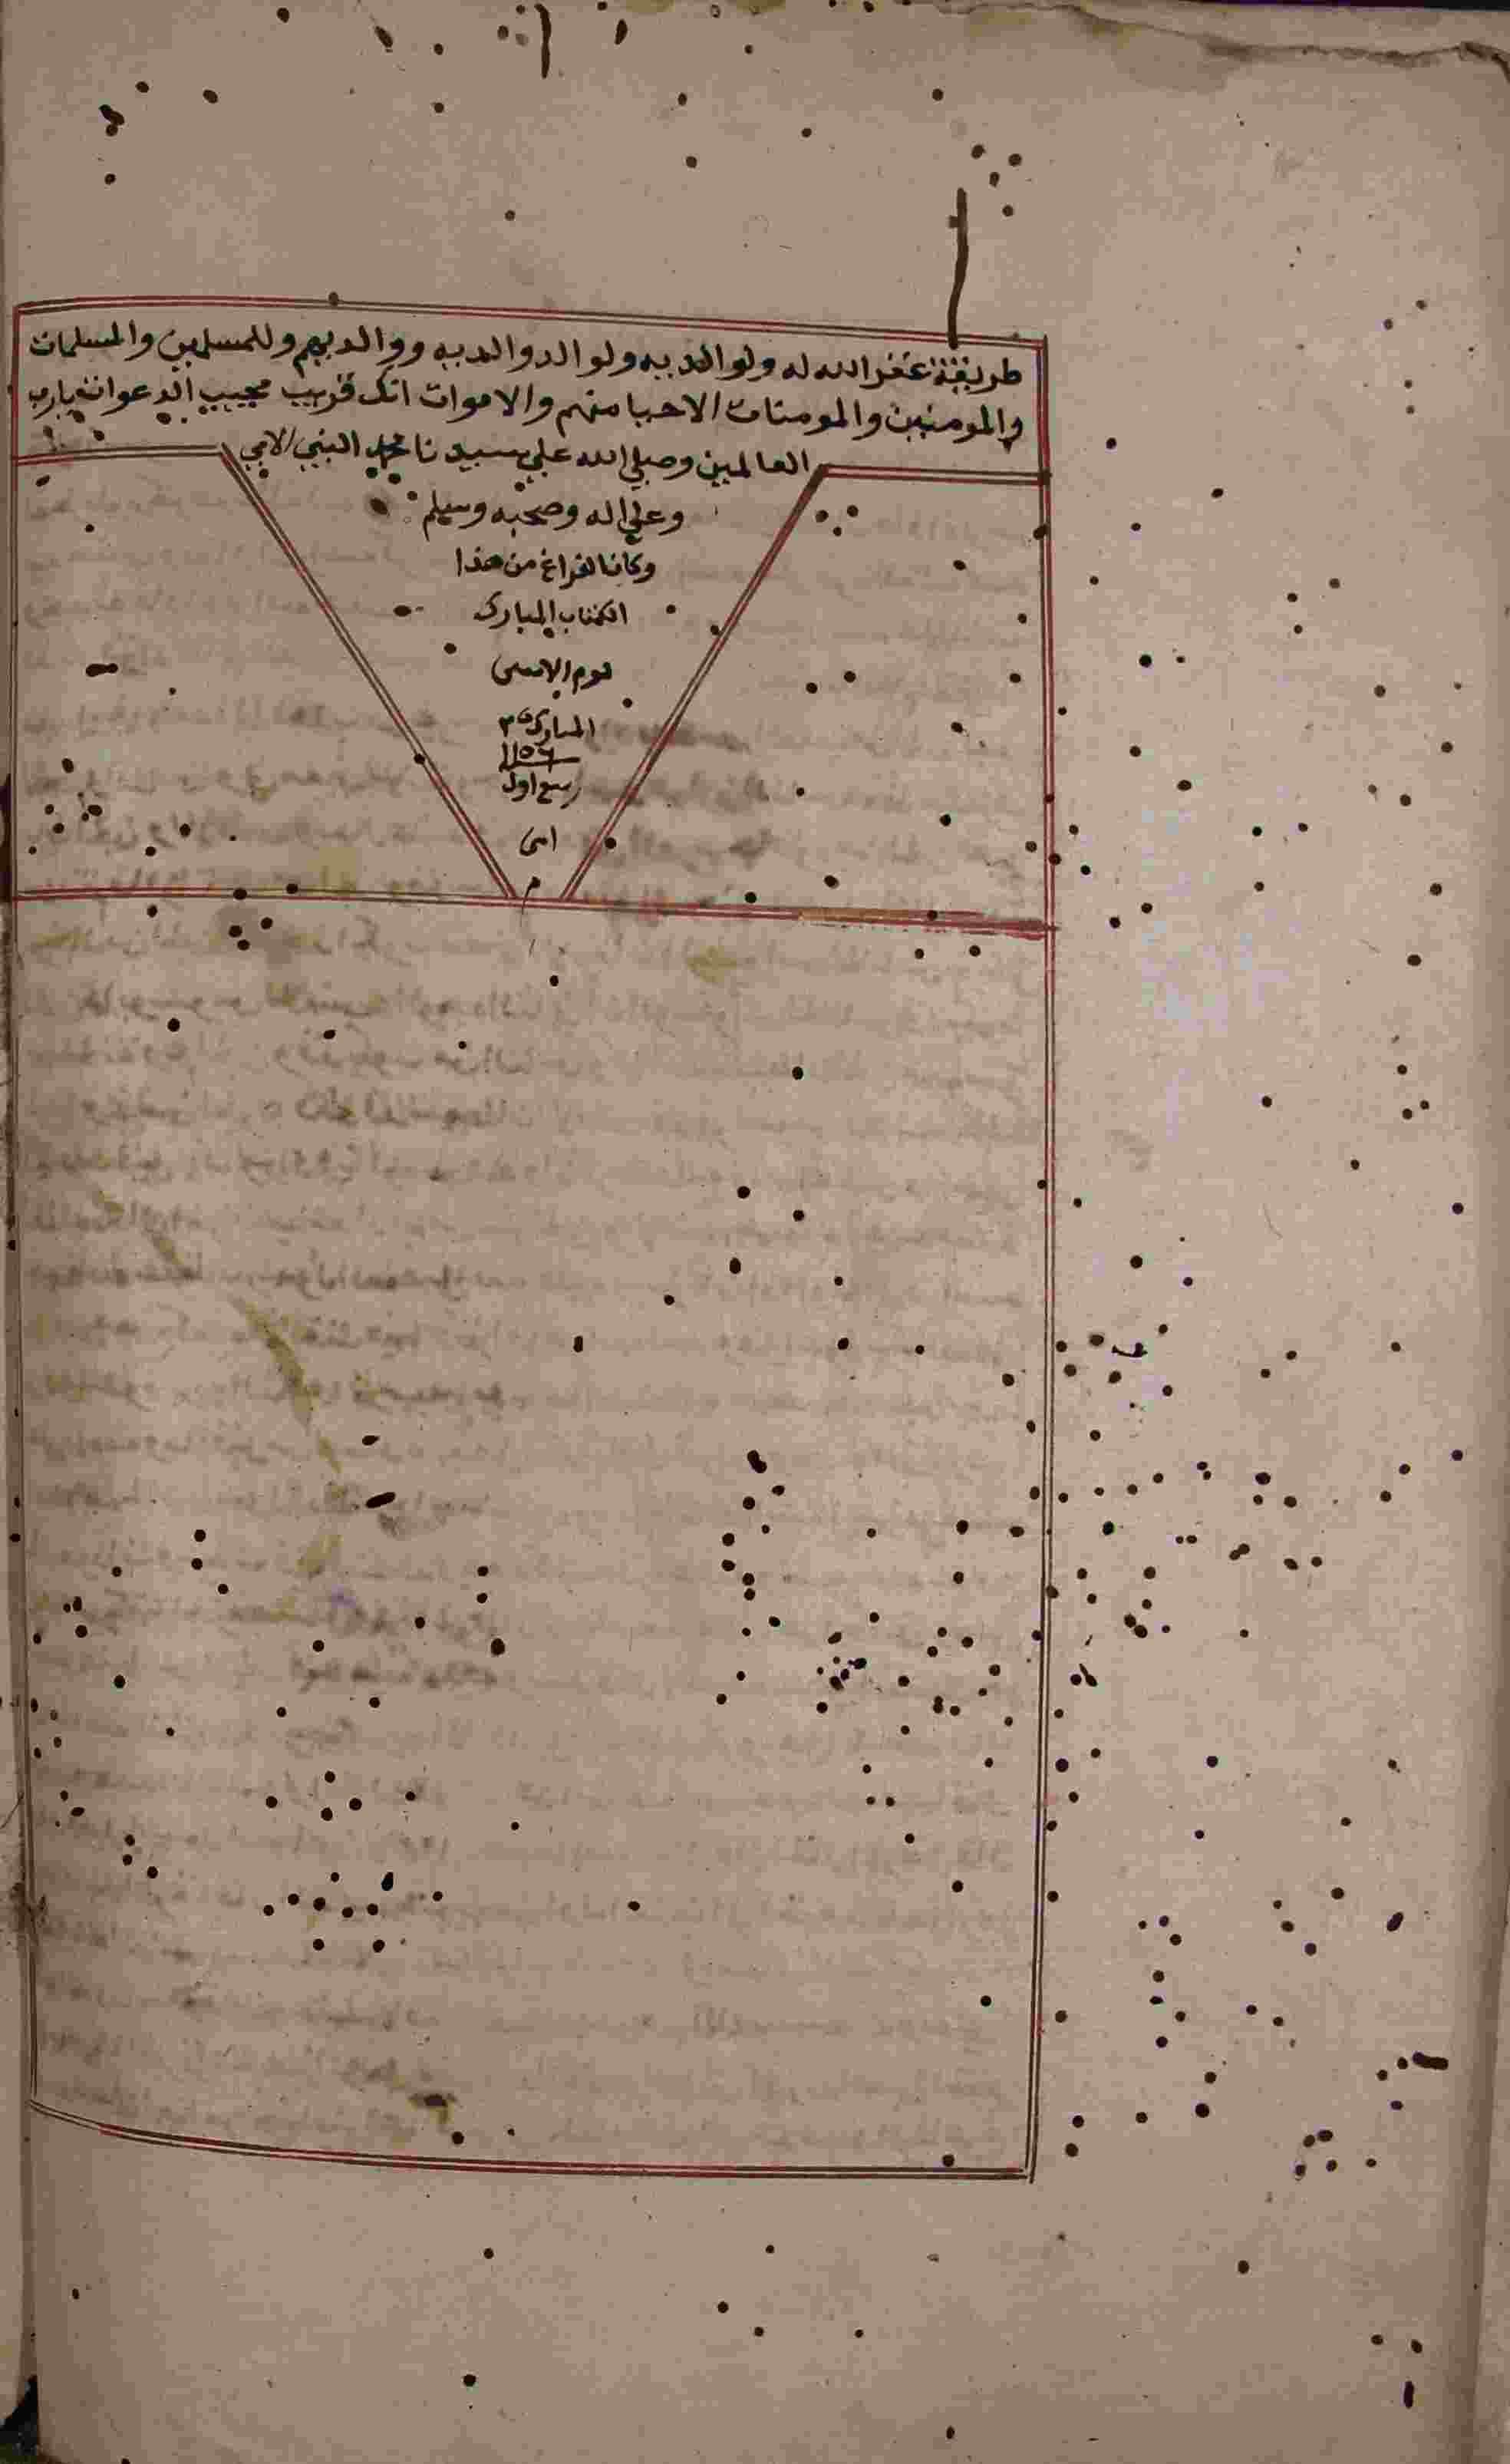 طريقة غفر الله له ولوالديه ولوالد والديه ووالديهم وللمسلمين والمسلمات
والمومنين والمومنات الاحيا منهم والاموات انك قريب مجيب الدعوات يارب
العالمين وصلي الله علي سيدنا محمد النبي الامي
وعلي اله وصحبه وسلم
وكان الفراغ من هذا
الكتاب المبارك
يوم الاثنين
المبارك
١١٥٦
ربيع اول
امين
م